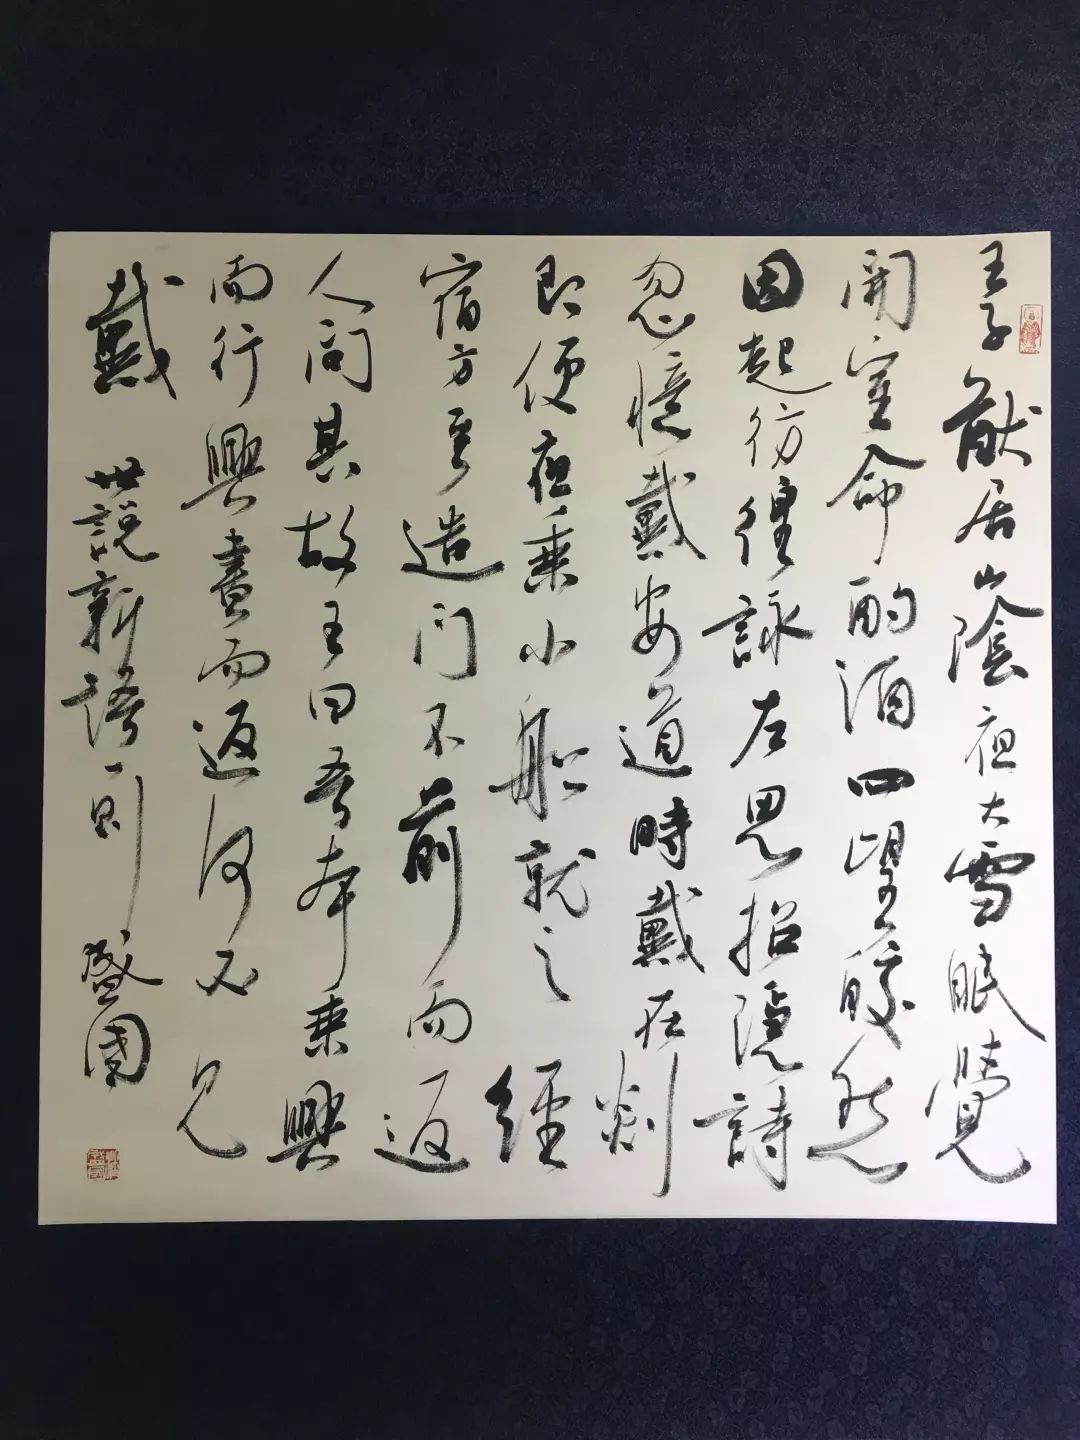 王子猷居山陰夜大雪眠覺
開室命酌酒四望皎然
因起彷徨詠左思招隱詩
忽憶戴安道時戴在剡
即便夜乘小船就之經
宿方至造门不前而返
人问其故王曰吾本乘興
而行興盡而返何必見
戴 世説新語一則 盛国